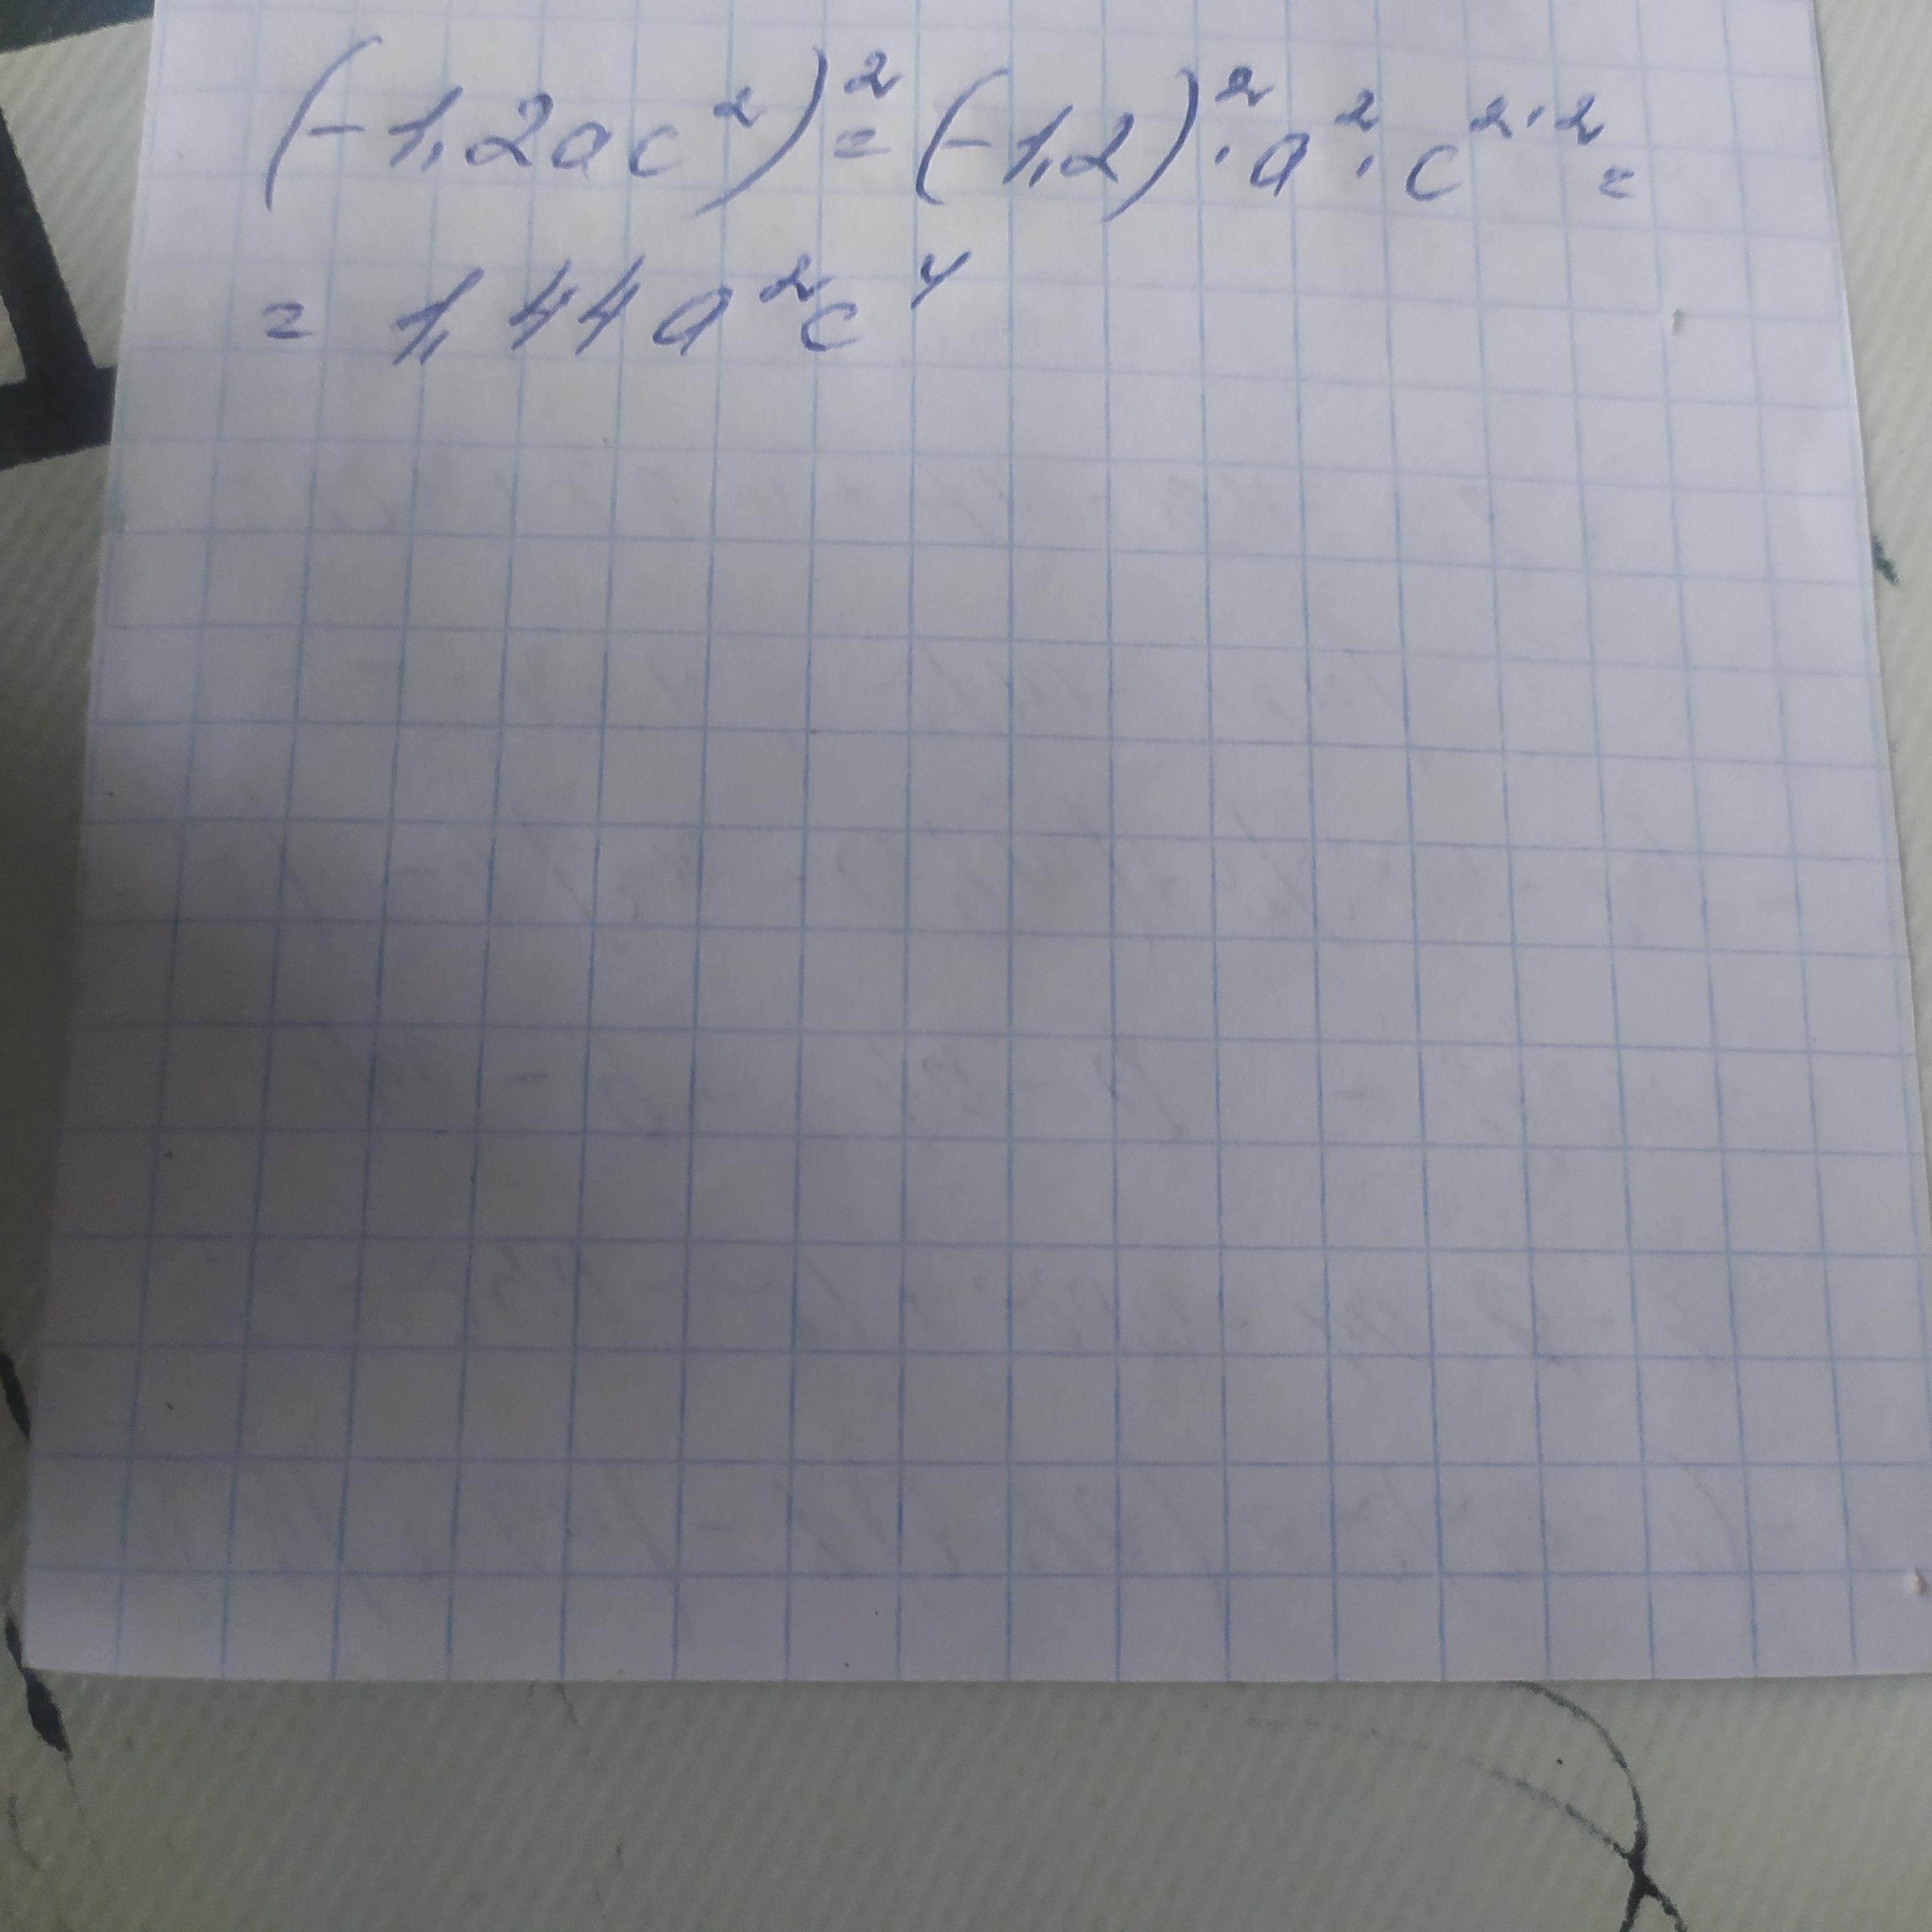 (-1,2ac²)² = (-1,2)² · a² · c²˙² =
= 1,44a²c⁴